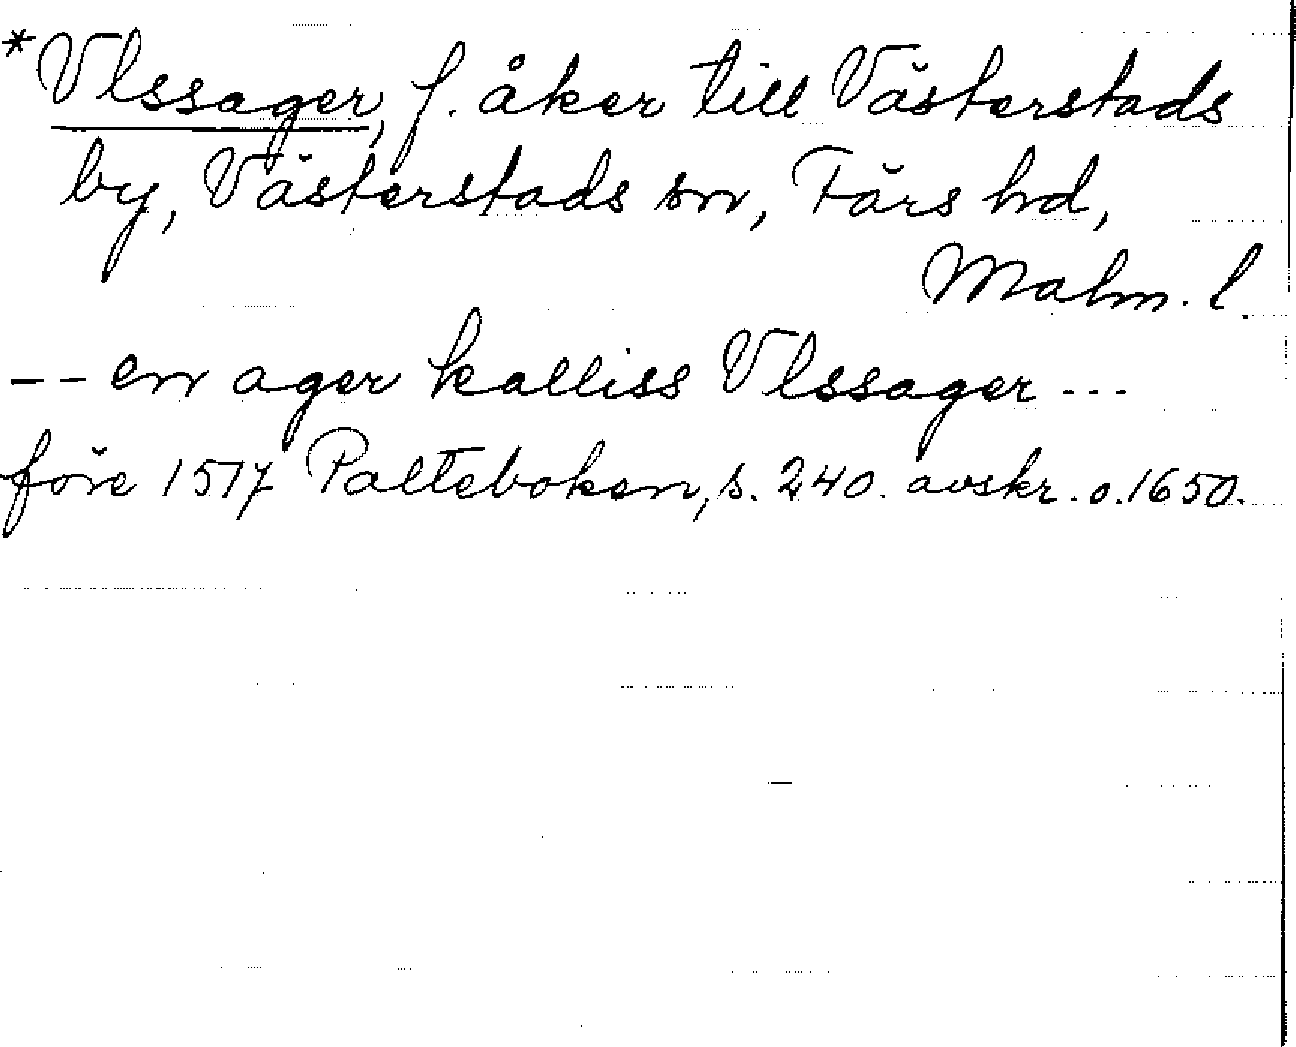 *Vlssager, f. åker till Västerstads
by, Västerstads sn, Färs hd,
Malm. l.
-- en ager kalliss Vlssager ---
före 1517 Palteboken, s. 240. avskr. o. 1650.